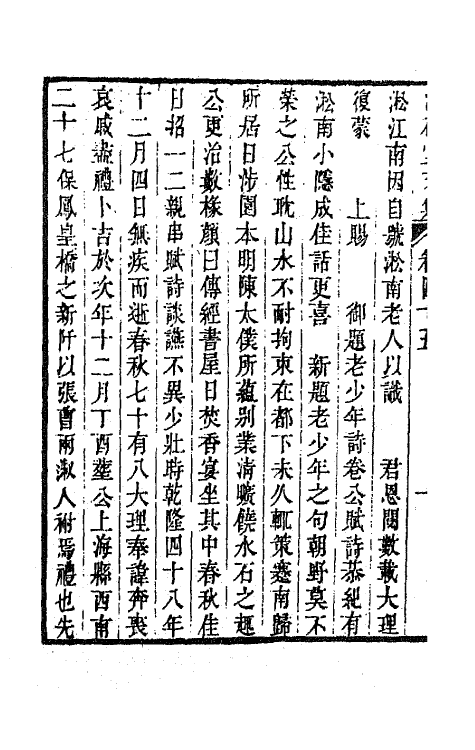 卷四十五
淞江南因自號淞南老人以識　君恩閱數載大理
復蒙　上賜　御題老少年詩卷公賦詩恭紀有
淞南小隱成佳話更喜　新題老少年之句朝野莫不
榮之公性耽山水不耐拘束在都下未久輒策蹇南歸
所居日涉園本明陳太僕所蕴别業清曠饒水石之趣
公更治數椽顏曰傳經書屋日焚香宴坐其中春秋佳
日招一二親串賦詩談讌不異少壯時乾隆四十八年
十二月四日無疾而逝春秋七十有八大理奉諱奔喪
哀戚盡禮卜吉於次年十二月丁酉塟公上海縣西南
二十七保鳳皇橋之新阡以張曹兩淑人祔焉禮也先